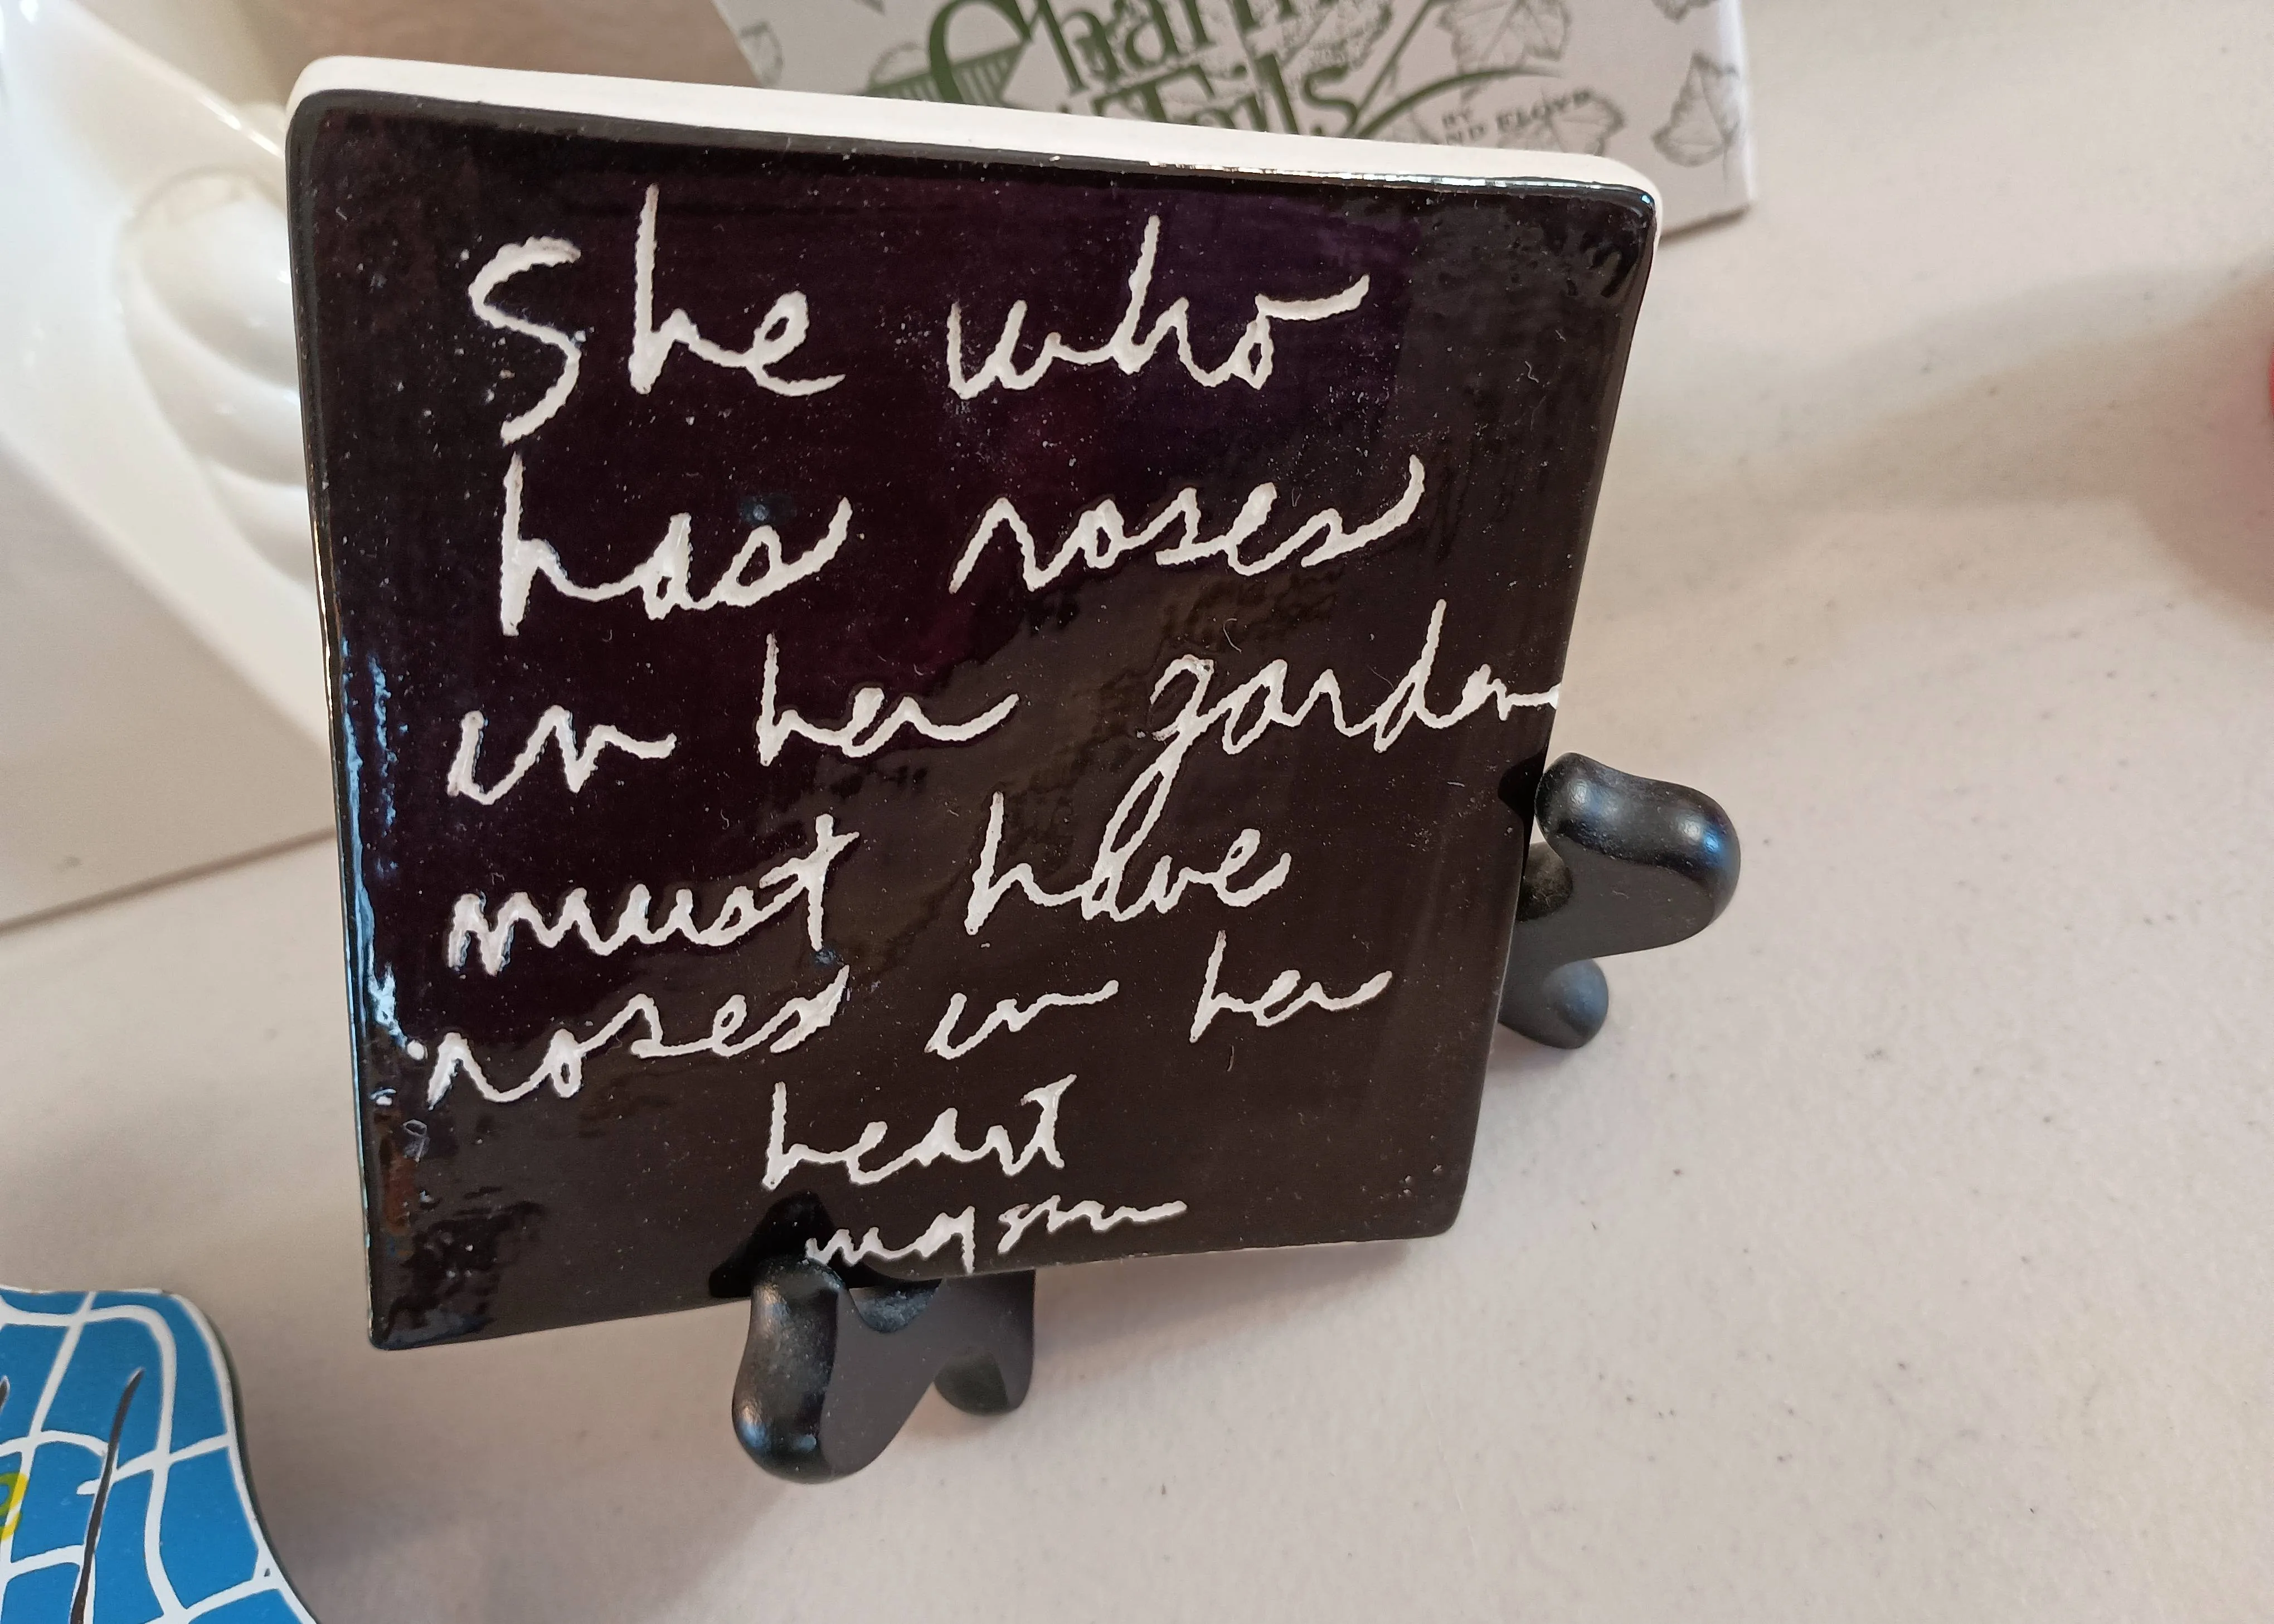 Charm
Tails
BY
ND FLOYD
She who
has roses
in her garden
must have
roses in her
heart